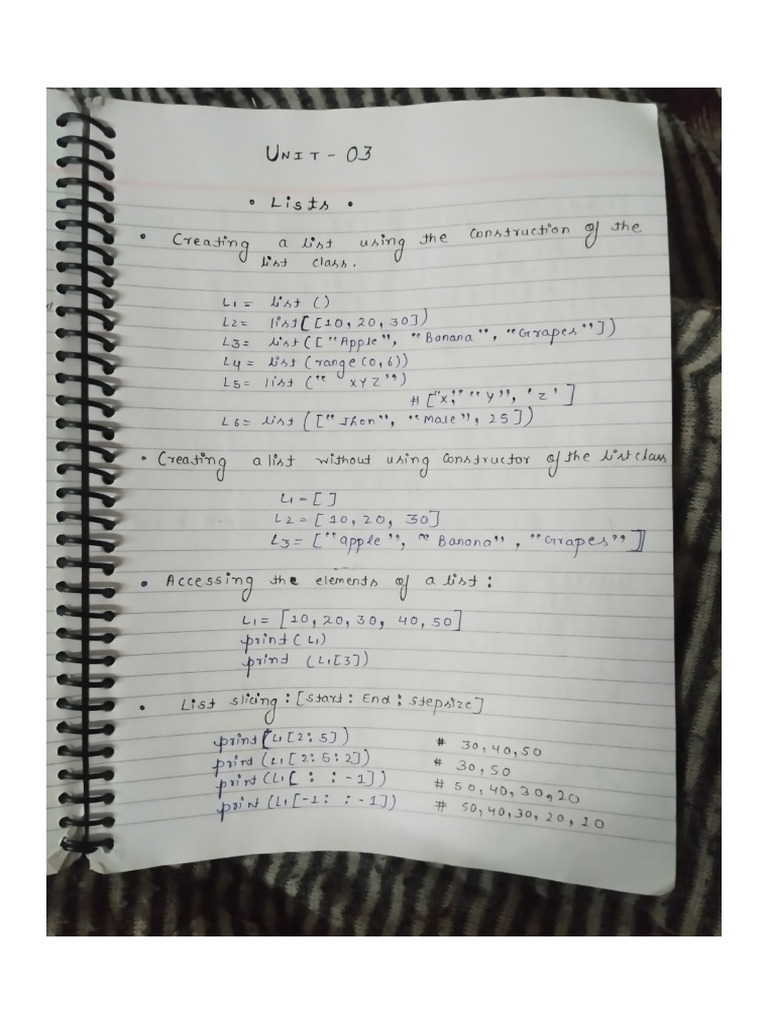 UNIT - 03
• Lists •
• Creating a list using the construction of the
list class.
L1 = list ()
L2 = list[[10, 20, 30])
L3 = list (["Apple", "Banana", "Grapes"])
L4 = list (range (0, 6))
L5 = list (" XYZ")
# ["x", "y", 'z']
L6 = list (["Jhon", "Male", 25])
• Creating a list without using constructor of the list class
L1 = [ ]
L2 = [10, 20, 30]
L3 = ["apple", "Banana", "Grapes"]]
• Accessing the elements of a list :
L1 = [10, 20, 30, 40, 50]
print (L1)
print (L1[3])
• List slicing : [start : End : stepsize]
print(L1[2:5]) # 30, 40, 50
print (L1[2:5:2]) # 30, 50
print (L1[ : : -1]) # 50, 40, 30, 20
print (L1[-1: : -1]) # 50, 40, 30, 20, 10